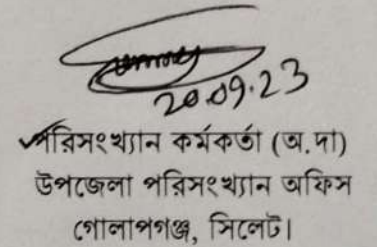 20.09.23
পরিসংখ্যান কর্মকর্তা (অ.দা)
উপজেলা পরিসংখ্যান অফিস
গোলাপগঞ্জ, সিলেট।